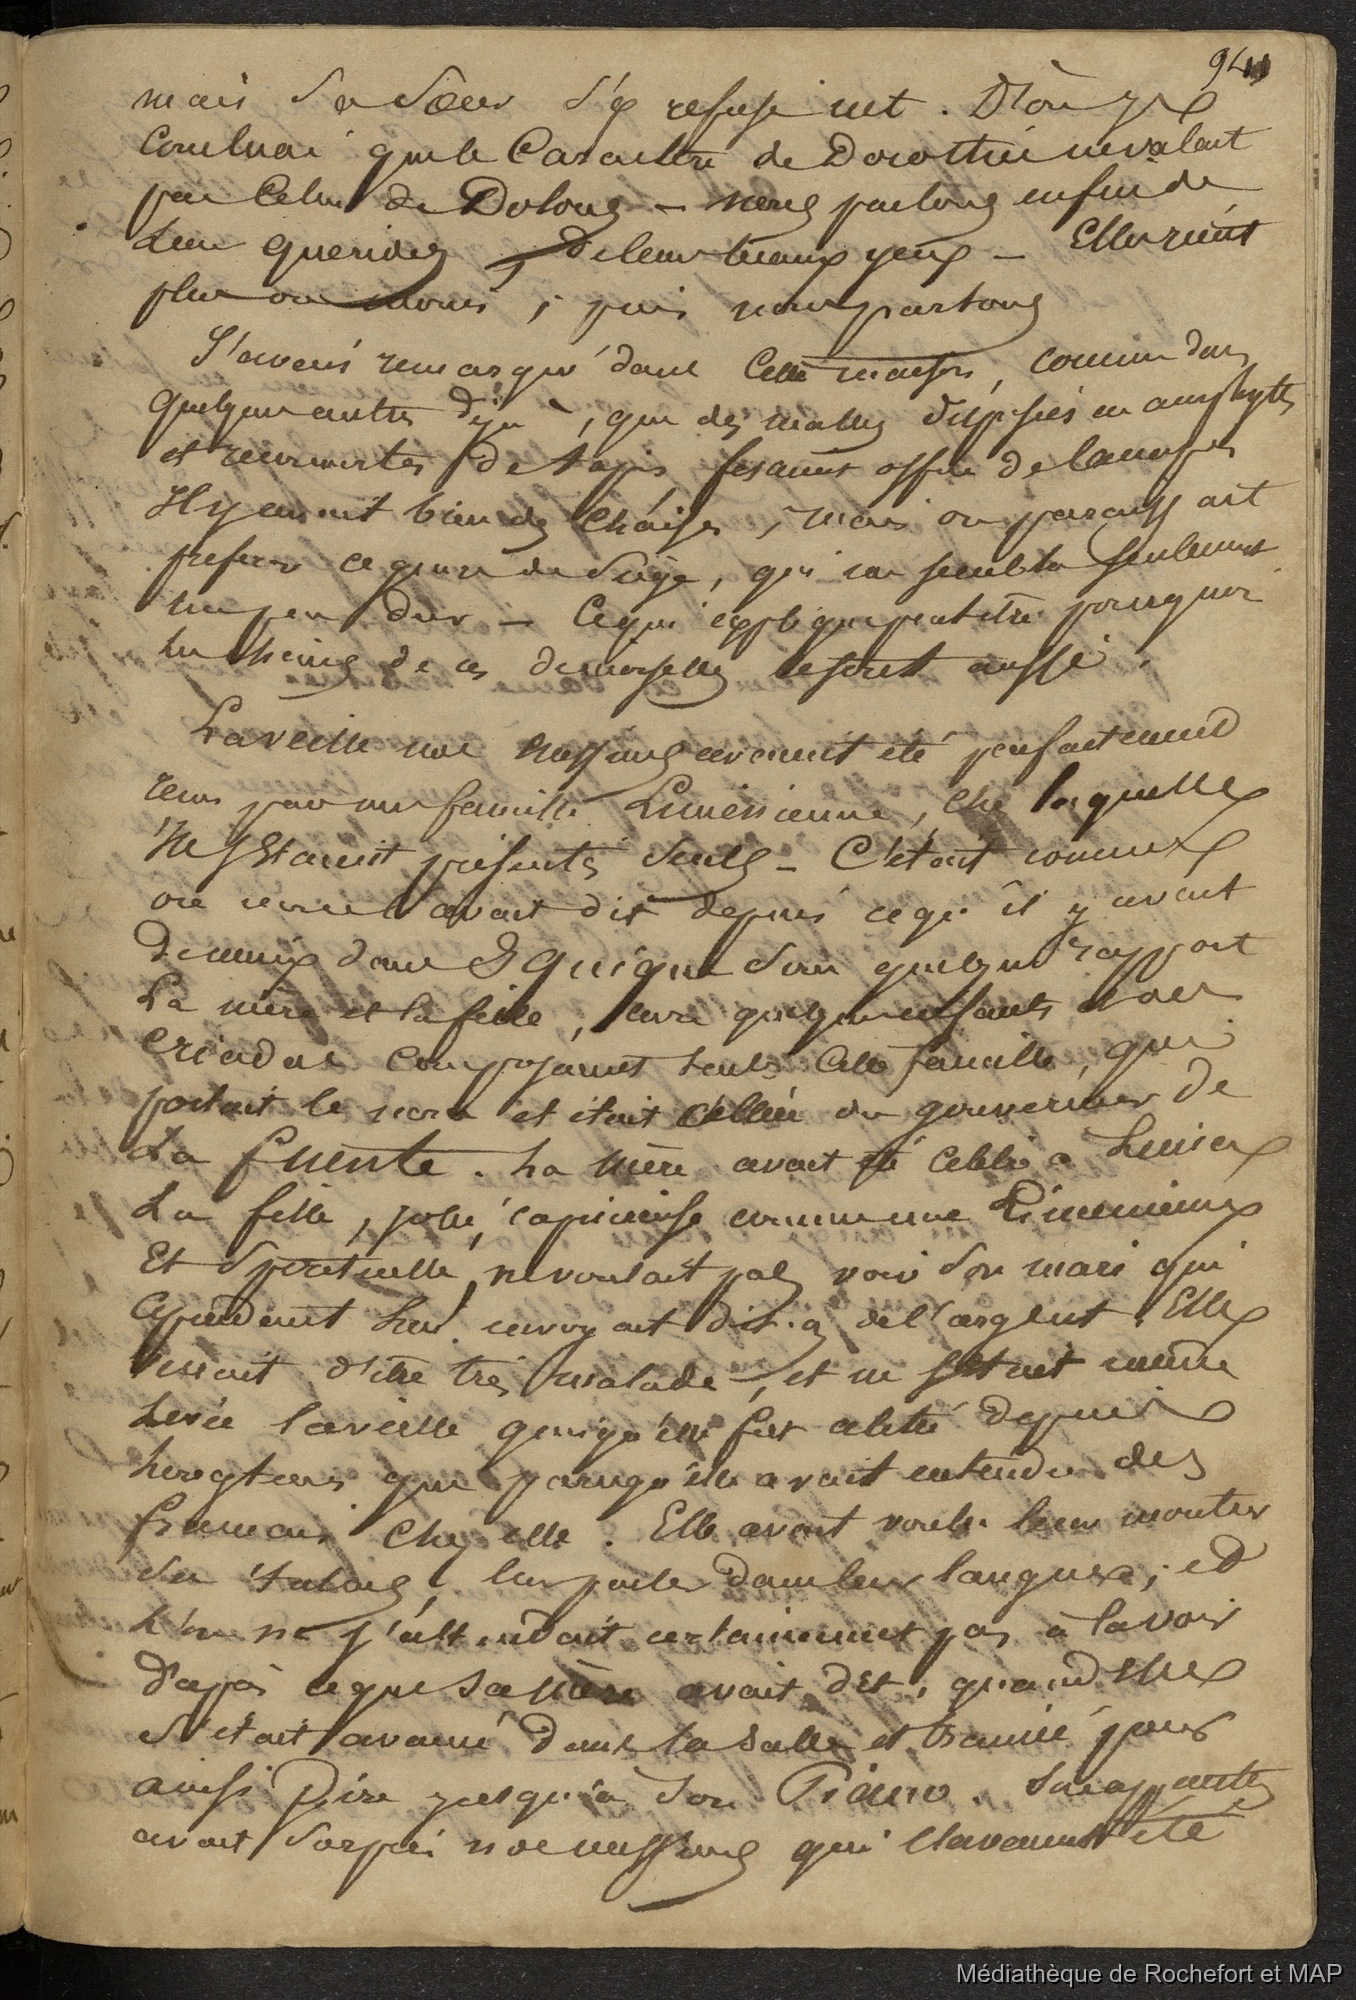 94
mais sa sœur s'y refuse net. D'où je
Concluai que le Caractère de Dorothée ne valait
pas Celui de Dolores – nous parlons enfin de
leur queridos, de leur beaux yeux – Elles rient
plus ou moins ; puis nous partons
J'avais remarqué dans Cette maison, comme dans
quelques autres déjà, que des malles disposées en amphyt
et recouvertes de tapis, fesaient office de canapés
Il y avait bien des Chaises, mais on paraissait
préférer ce genre de Siège, qui me sembla seulement
un peu dur – Ce qui explique peut être pourquoi
de ces demoiselles le sont aussi.
La veille nos avaient été parfaitement
reçus par une famille Liménienne, chez laquelle
ils s'étaient présentés Seuls – C'était comme
on me l'avait dit depuis ce qu'il y avait
de mieux dans Iquique sous quelque rapport
La mère et la fille, avec quelques enfants et des
Criadas Composaient Seuls Cette famille, qui
portait le nom et était alliée du gouverneur de
La Fuente. La mère avait été Célèbre à Lima
La fille, jolie, Capricieuse comme une Liménienne
Et Spirituelle, ne voulait pas voir son mari qui
Cependant lui envoyait dit-on de l'argent. Elle
disait d'être très malade, et ne s'était même
levée la veille quoiqu'elle fut alitée depuis
longtems que parcequ'elle avait entendu des
français Chez elle. Elle avait voulu leur montrer
ses talens, leur parler dans leur langue ; et
l'on ne s'attendait certainement pas à la voir
d'après ce que Sa Mère avait dit, quand elle
S'était avancé dans la Salle et trainée pour
ainsi dire jusqu'à Son Piano.
avait Surpris nos qui l'avaient été
Médiathèque de Rochefort et MAP